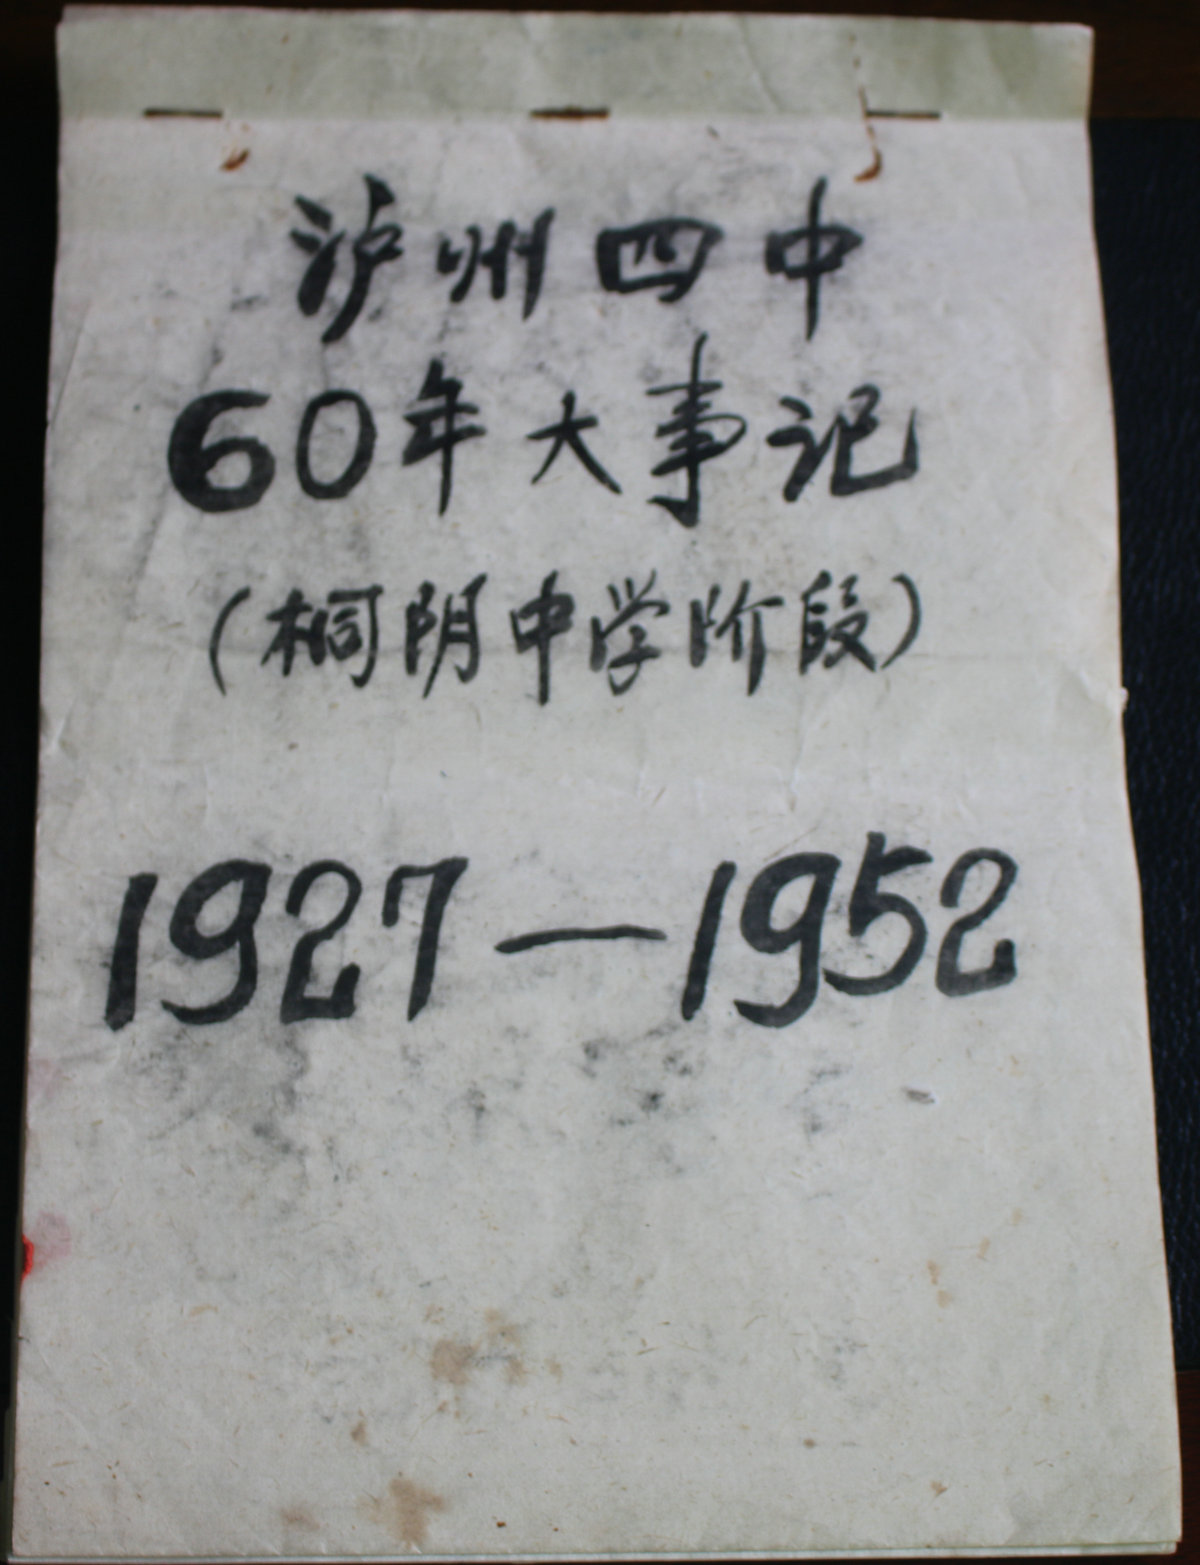 泸州四中
60年大事记
(桐阴中学阶段)
1927—1952